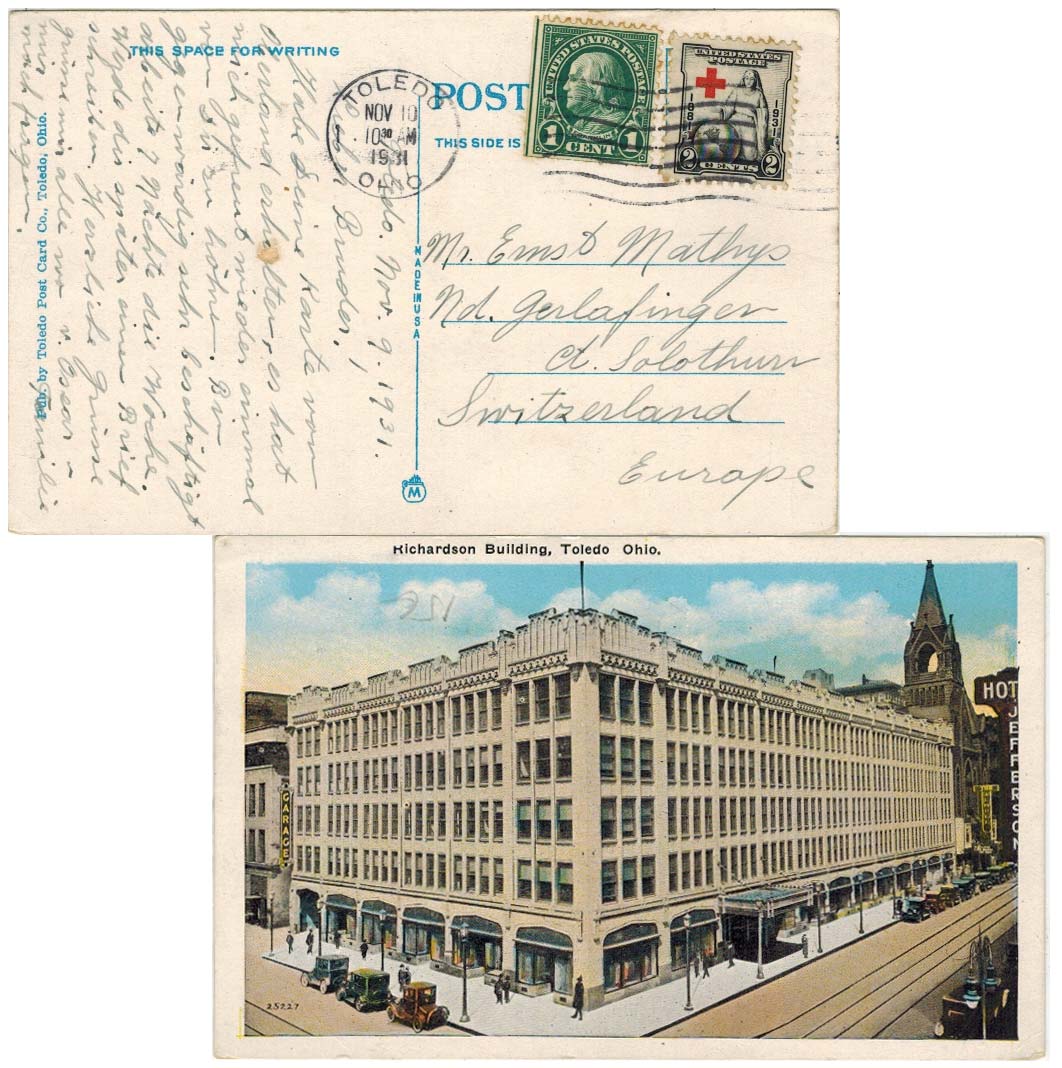 THIS SPACE FOR WRITING
POST
THIS SIDE IS
UNITED STATES POSTAGE
1 CENT 1
UNITED STATES
POSTAGE
1881 1931
2 CENTS 2
TOLEDO
NOV 10
10 30 AM
1931
OHIO
MADE IN USA
M
Pub. by Toledo Post Card Co., Toledo, Ohio.
Mr. Ernst Mathys
Nd. Gerlafingen
Ct. Solothurn
Switzerland
Europe
Toledo. Nov. 9. 1931.
Bruder,
Habe Deine Karte vom
erhalten, es hat
mich gefreut wieder einmal
von Dir zu hören. Bin
gegenwärtig sehr beschäftigt
arbeite 7 Nächte die Woche.
Werde dir später einen Brief
schreiben. Herzliche Grüsse
an alle v. Oscar
Familie
Richardson Building, Toledo Ohio.
GARAGE
HOT
JEFFERSON
25227